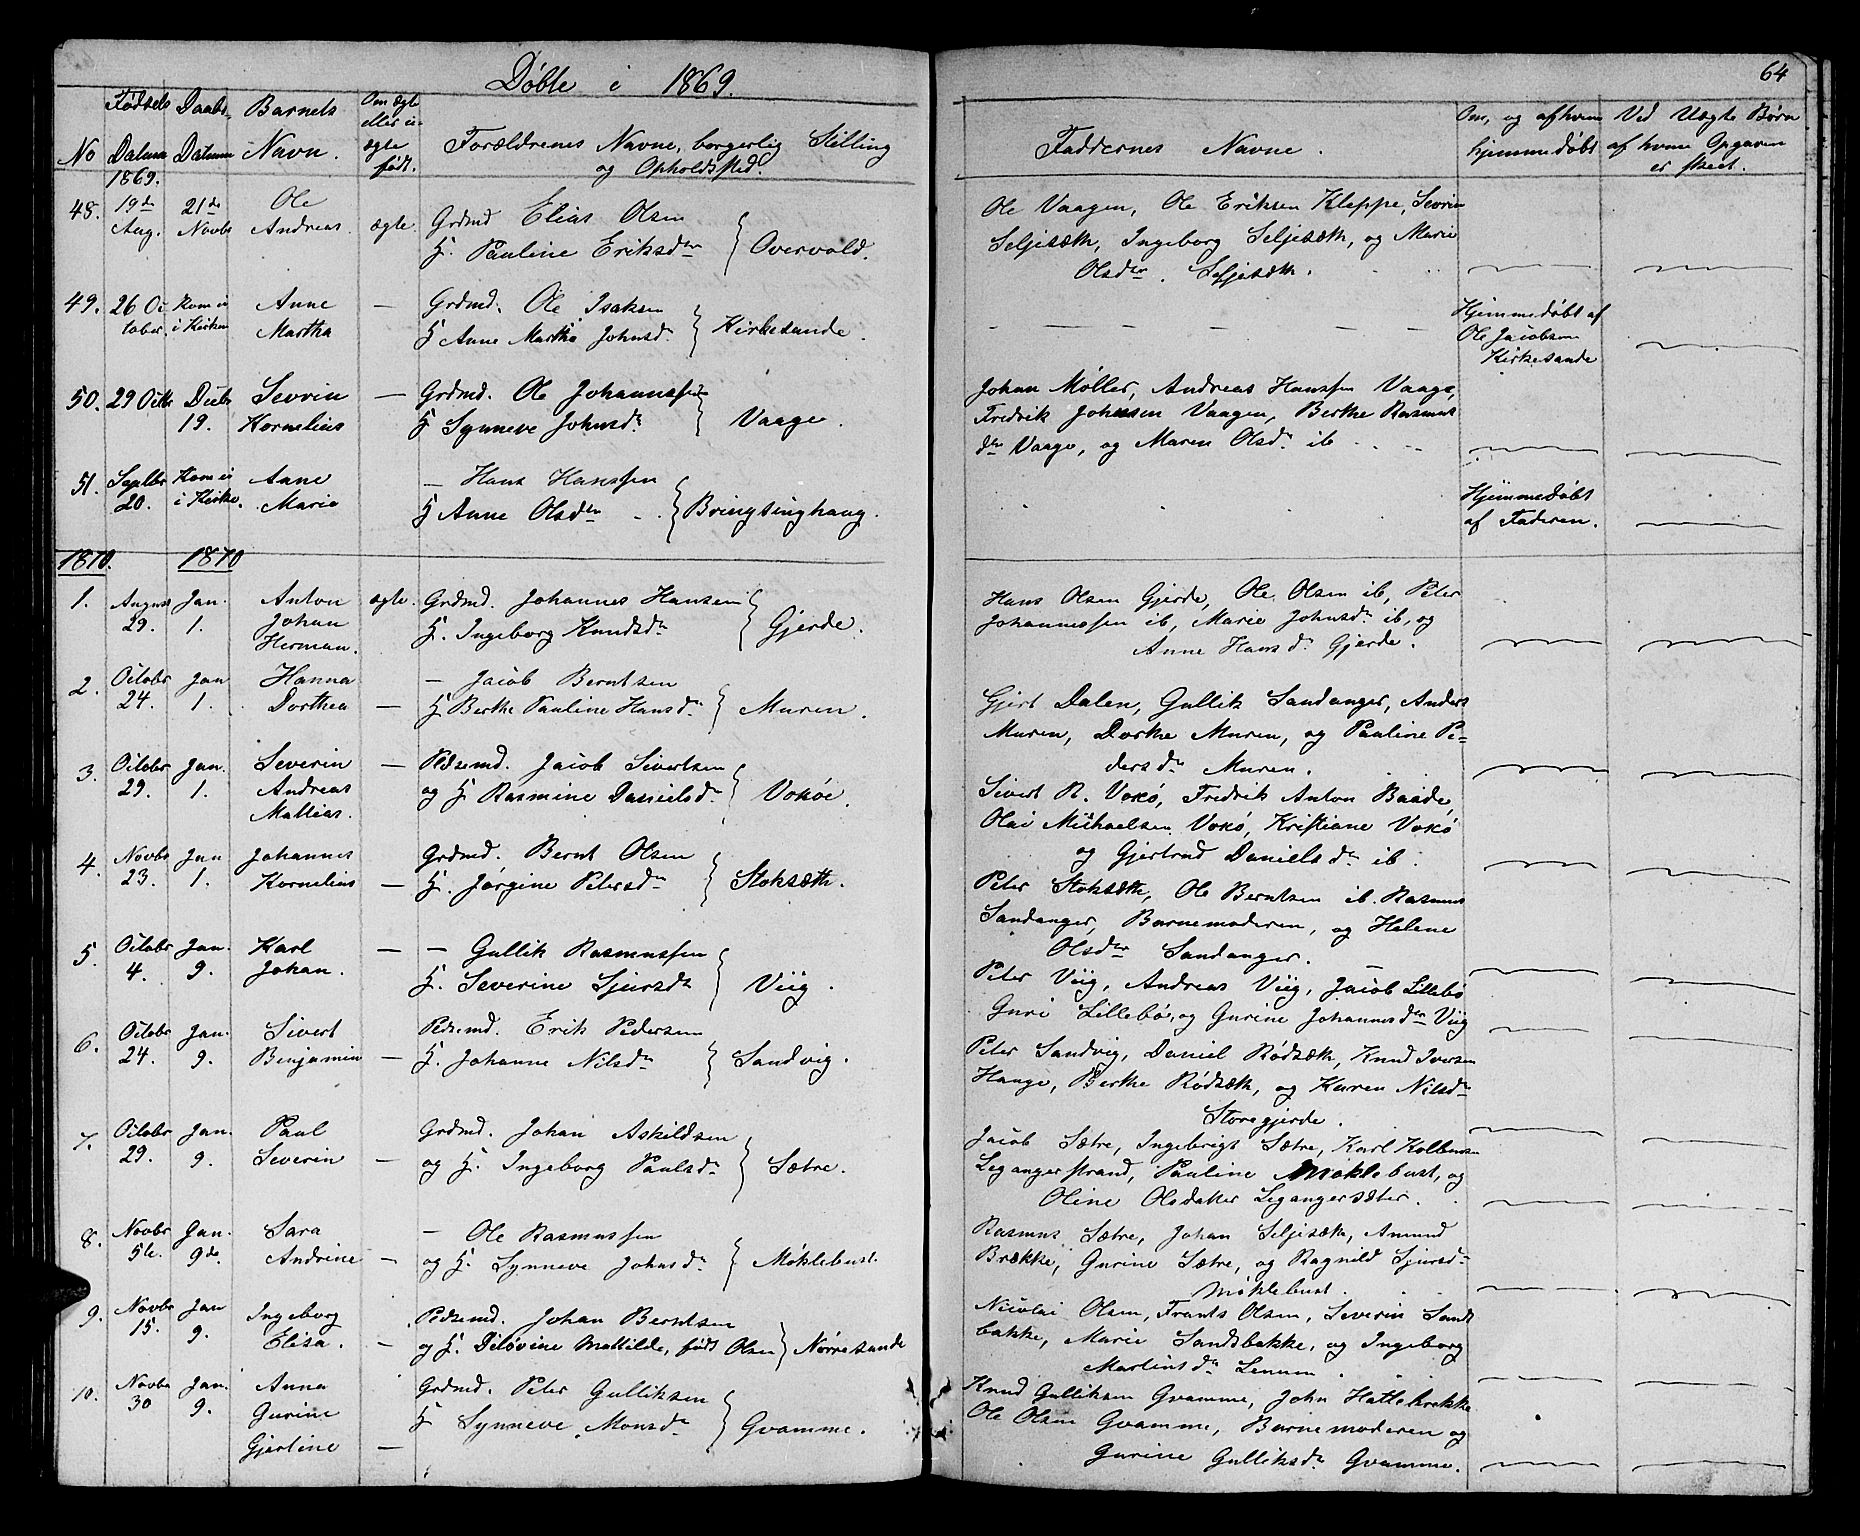 Døbte i 1869.
64
No
Fødsels Datum
Daabs Datum
Barnets Navn.
Om ægte eller uægte født.
Forældrenes Navne, borgerlig Stilling og Opholdssted.
Faddernes Navne.
Om, og af hvem hjemmedøbt
Ved Uægte Børn af hvem Opgaven er skeet.
1869.
48. 19de Aug. 21de Novbr Ole Andreas. ægte.
Grdmd Elias Olsen
H. Pauline Eriksdtr } Overvold.
Ole Vaagen, Ole Eriksen Kleppe, Sevrin
Seljesæth, Ingeborg Seljesæth, og Marie
Olsdtr. Seljesæth.
49. 26 October. Kom ei i Kirken Anne Martha —
Grdmd. Ole Isaksen
H Anne Martha Johnsd. } Kirkesande.
Hjemmedøbt af
Ole Jacobsen
Kirkesande
50. 29 Octbr Decbr 19. Sevrin Kornelius —
Grdmd. Ole Johannessen
H Synneve Johnsdr } Vaage.
Johan Møller, Andreas Hanssen Vaage,
Fredrik Johnsen Vaagen, Berthe Rasmus
dtr Vaage, og Maren Olsdr ib
51. Septbr 20. Kom ei i Kirke. Anne Marie
— Hans Hanssen
H Anne Olsdtr } Bringsinghaug.
Hjemmedøbt
af Faderen.
1870. 1870
1. August 29. Jan. 1. Anton Johan Herman. ægte.
Grdmd. Johannes Hansen
H. Ingeborg Knudsdr } Gjerde.
Hans Olsen Gjerde, Ole Olsen ib, Peter
Johannessen ib, Marie Johnsdr ib, og
Anne Hansdr Gjerde.
2. Octobr 24. Jan 1. Hanna Dorthea —
— Jacob Berntsen
H Berthe Pauline Hansdr } Muren.
Gjert Dalen, Gullik Sandanger, Anders
Muren, Dorthe Muren, og Pauline Pe-
dersdr Muren.
3. Octobr 29. Jan. 1. Severin Andreas Mathias. —
Pdsemd. Jacob Sivertsen
og H Rasmine Danielsdr } Voxøe.
Sivert R. Voxø, Fredrik Anton Baade,
Olai Michaelsen Voxø, Kristiane Voxø
og Gjertrud Danielsdr ib.
4. Novbr 23. Jan 1. Johannes Kornelius —
Grdmd. Bernt Olsen
H. Jørgine Petersdr } Stoksæth.
Peter Stoksæth, Ole Berntsen ib. Rasmus
Sandanger, Barnemoderen, og Helene
Olsdtr Sandanger.
5. Octobr 4. Jan. 9. Karl Johan. —
— Gullik Rasmussen
H. Severine Sjursdr } Viig.
Peter Viig, Andreas Viig, Jacob Lillebø
Guri Lillebø, og Gurine Johannesdtr Viig
6. Octobr 24. Jan. 9. Sivert Benjamin —
Pdsemd. Erik Pedersen
H. Johanne Nilsdr } Sandvig.
Peter Sandvig, Daniel Rødsæth, Knud Iversen
Hauge, Berthe Rødsæth, og Karen Nilsdr
Storegjerde.
7. Octobr 29. Jan. 9. Paul Severin —
Grdmd. Johan Askildsen
og H. Ingeborg Paulsdr } Sætre.
Jacob Sætre, Ingebrigt Sætre, Karl Kolbensen
Legangerstrand, Pauline Møklebust, og
Oline Olsdatter Legangersæter.
8. Novbr 5te. Jan. 9de. Sara Andrine —
— Ole Rasmussen
og H. Synneve Johnsdr } Møklebust.
Rasmus Sætre, Johan Seljesæth, Amund
Brække, Gurine Sætre, og Ragnild Sjursdr
Møklebust.
9. Novbr 15. Jan 9. Ingeborg Elisa. —
Pdsemd. Johan Berntsen
og H. Ditlovine Mathilde, født Olsen } Nørresande
Nicolai Olsen, Frants Olsen, Severin Sands
bakke, Marie Sandsbakke, og Ingeborg
Martinsdr
10. Novbr 30 Jan. 9. Anna Gurine Gjertine —
Grdmd. Peter Gulliksen
H Synneve Monsdr } Gvamme.
Knud Gulliksen Gvamme, John Hattebrekke
Ole Olsen Gvamme, Barnemoderen og
Gurine Gulliksdr Gvamme.